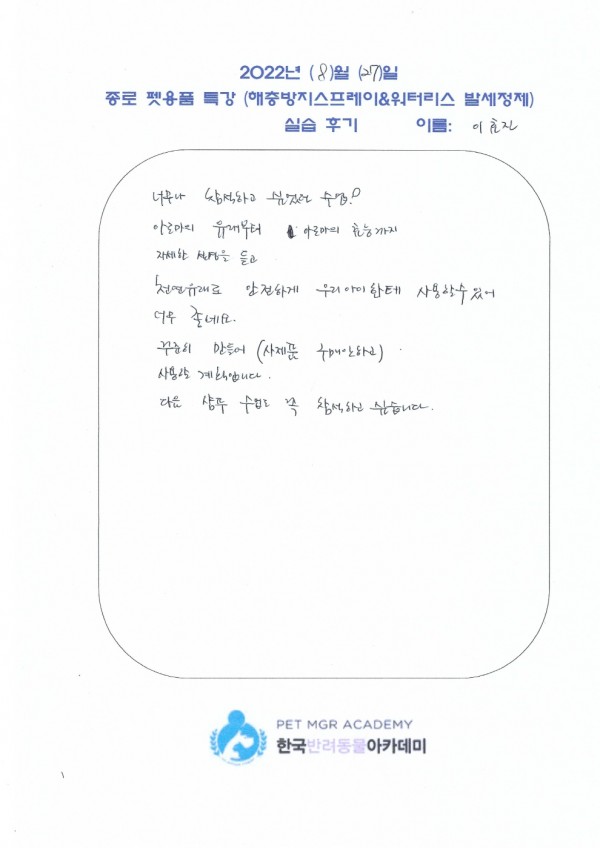 2022년 (8)월 (27)일
종로 펫용품 특강 (해충방지스프레이&워터리스 발세정제)
실습 후기 이름: 이효진
너무나 참석하고 싶었던 수업!
아로마의 유래부터 아로마의 효능까지
자세한 설명을 듣고
천연유래로 안전하게 우리아이한테 사용할수있어
너무 좋네요.
꾸준히 만들어 (사제품 구매안하고)
사용할 계획입니다.
다음 샴푸 수업도 꼭 참석하고 싶습니다.
PET MGR ACADEMY
한국반려동물아카데미